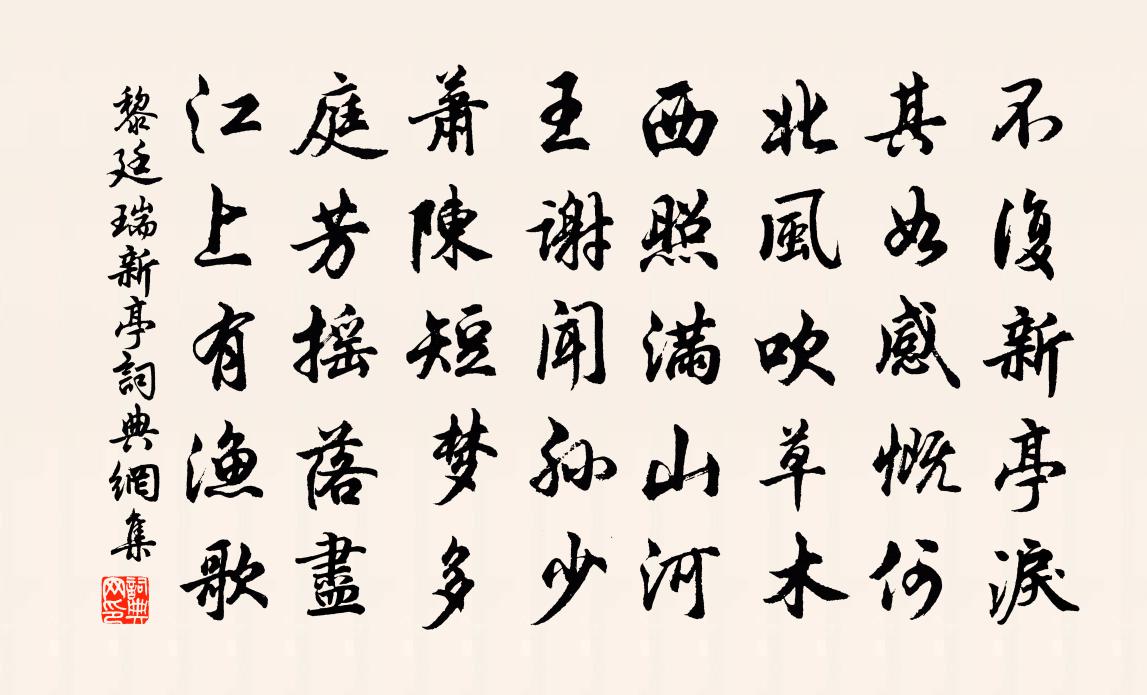 不復新亭淚
其如感慨何
北風吹草木
西照滿山河
王謝聞孫少
蕭陳短梦多
庭芳摇落盡
江上有漁歌
黎廷瑞新亭詞典網集
詞典网印